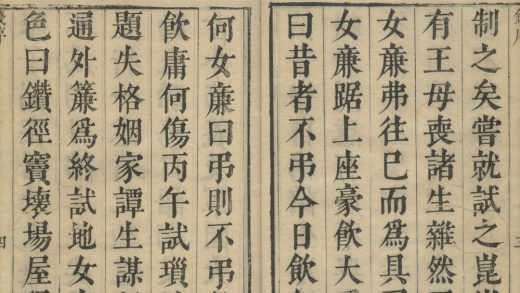 制之矣嘗就試之崑
有王母喪諸生雜然
女廉弗往已而為具
女廉踞上座豪飲大
曰昔者不弔今日飲
何女廉曰弔則不弔
飲庸何傷丙午試瑣
題失格姻家譚生謀
通外簾為終試地女
色曰鑽徑竇壞場屋
四